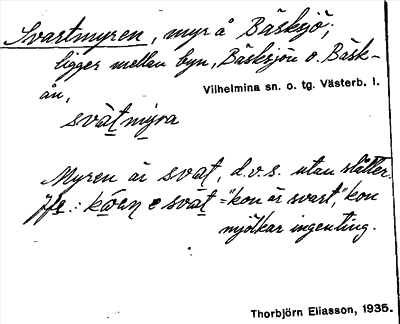 Svartmyren, myr å Bäsksjö;
ligger mellan byn, Bäsksjön o. Bäsk-
ån,
Vilhelmina sn. o. tg. Västerb. l.
svàt mýra
Myren är svat, d.v.s. utan slåtter.
Jfr: kóen e svat = "kon är svart", kon
mjölkar ingenting.
Thorbjörn Eliasson, 1935.